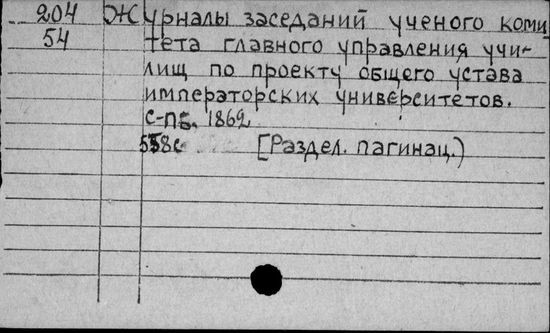 204 Журналы заседаний ученого коми
54 тета главного управления учи-
лищ по проекту общего устава
императорских университетов.
С-Пб. 1862
558с [Раздел. пагинац.)